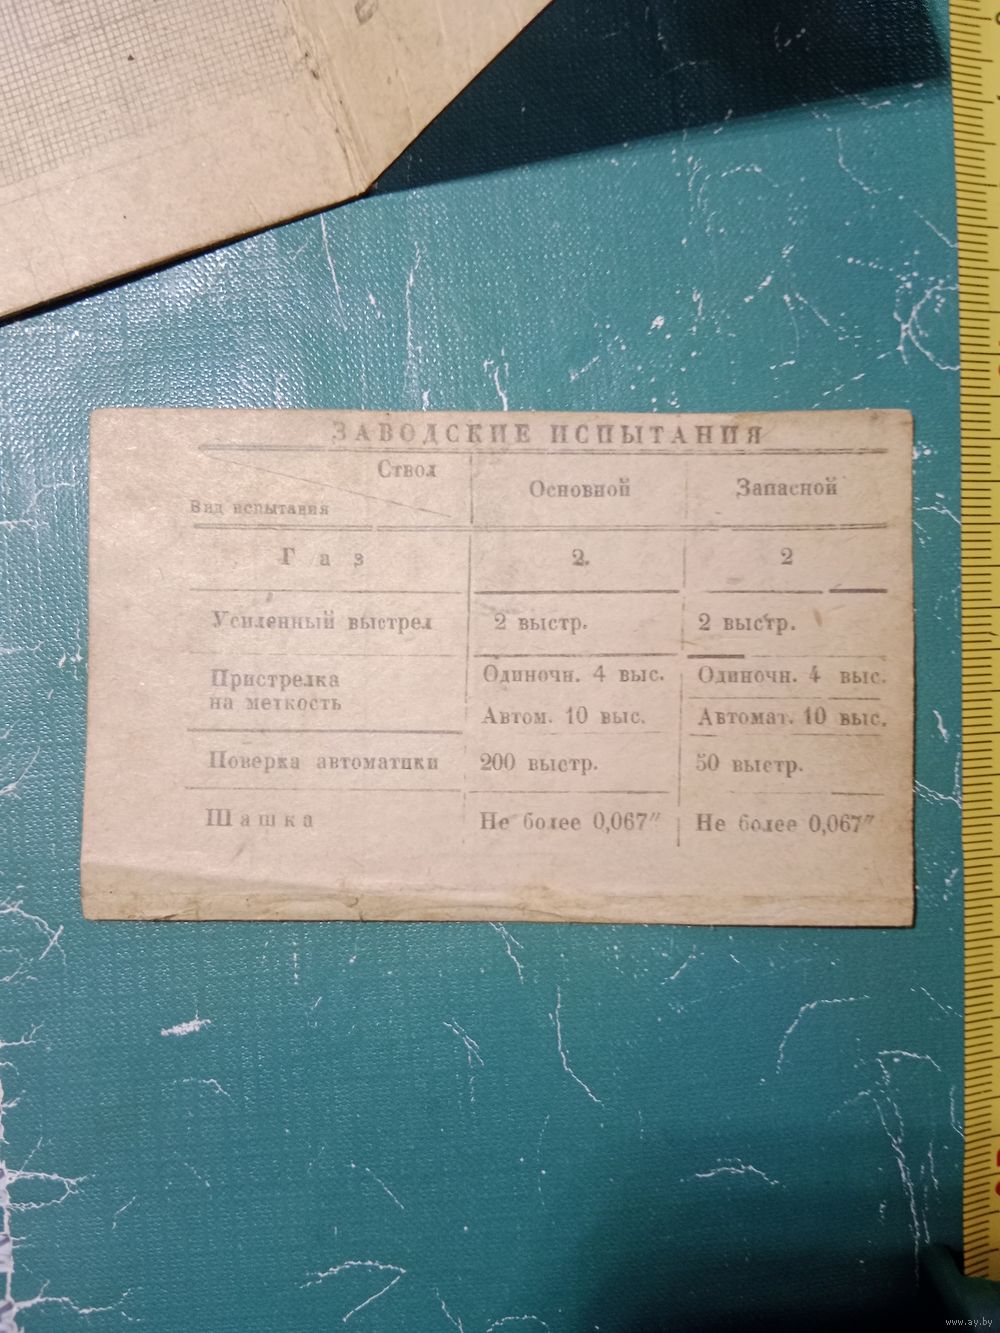 ЗАВОДСКИЕ ИСПЫТАНИЯ
Ствол
Вид испытания
Основной
Запасной
Газ 2. 2
Усиленный выстрел 2 выстр. 2 выстр.
Пристрелка
на меткость
Одиночн. 4 выс. Одиночн. 4 выс.
Автом. 10 выс. Автомат. 10 выс.
Поверка автоматики 200 выстр. 50 выстр.
Шашка Не более 0,067″ Не более 0,067″
www.ay.by